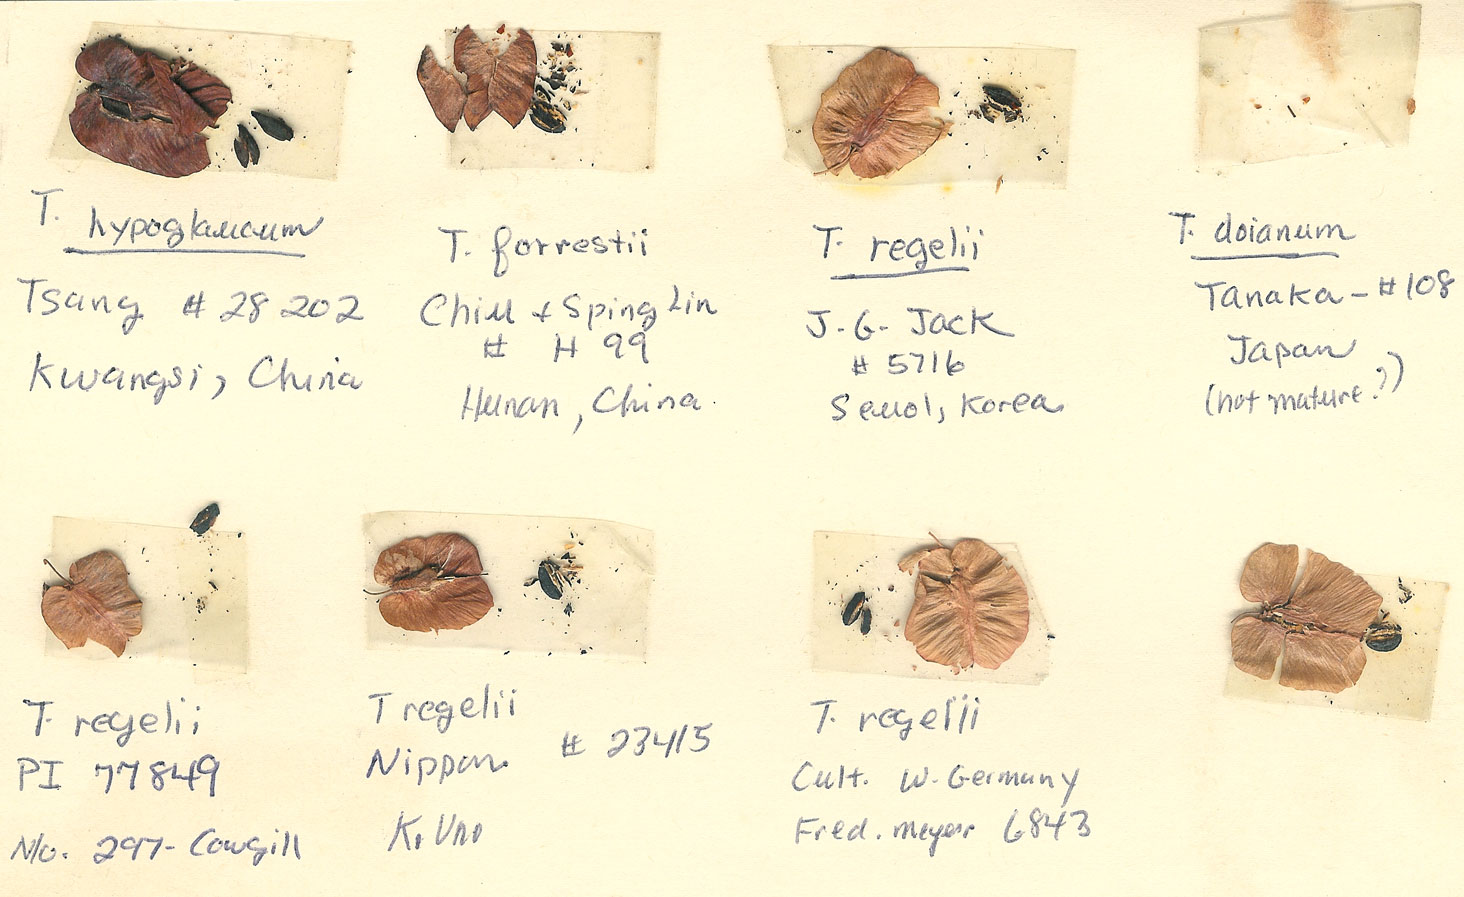 T. hypoglaucum
Tsang # 28202
Kwangsi, China
T. forrestii
Chiu & Sping Lin
# H 99
Hunan, China.
T. regelii
J. G. Jack
# 5716
Seuol, Korea
T. doianum
Tanaka - #108
Japan
(not mature?)
T. regelii
PI 77849
No. 297 - Cowgill
T regelii
Nippon # 23415
K. Uno
T. regelii
Cult. W. Germany
Fred. Meyer 6843